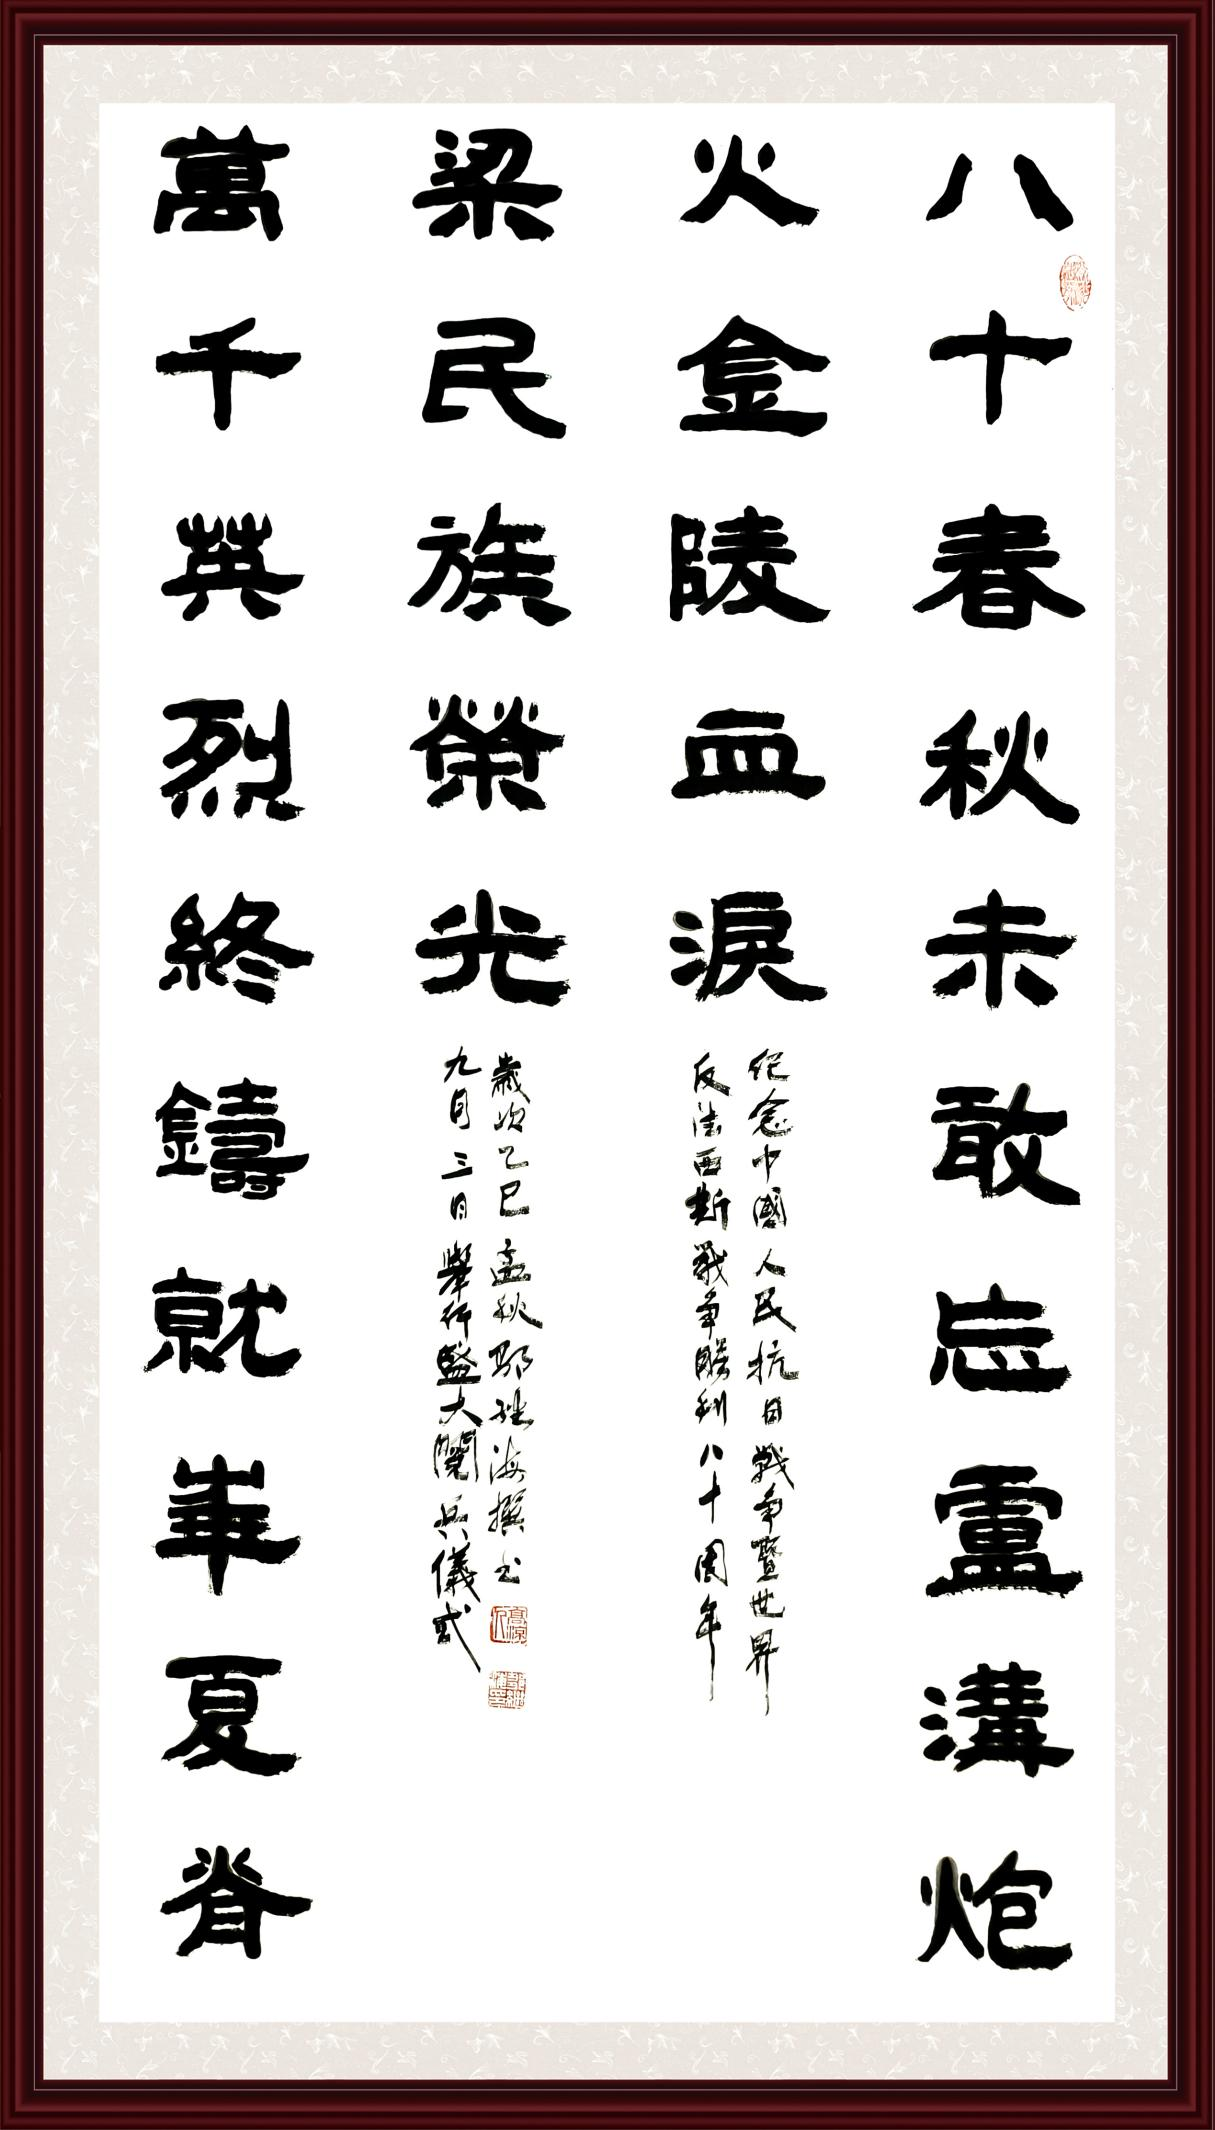 八十春秋未敢忘盧溝炮
火金陵血淚
纪念中國人民抗日戰争暨世界
反法西斯戰争勝利八十周年
萬千英烈終鑄就華夏脊
梁民族榮光
歲次乙巳孟秋海撰书
九月三日舉行盛大閱兵儀式
高涼人